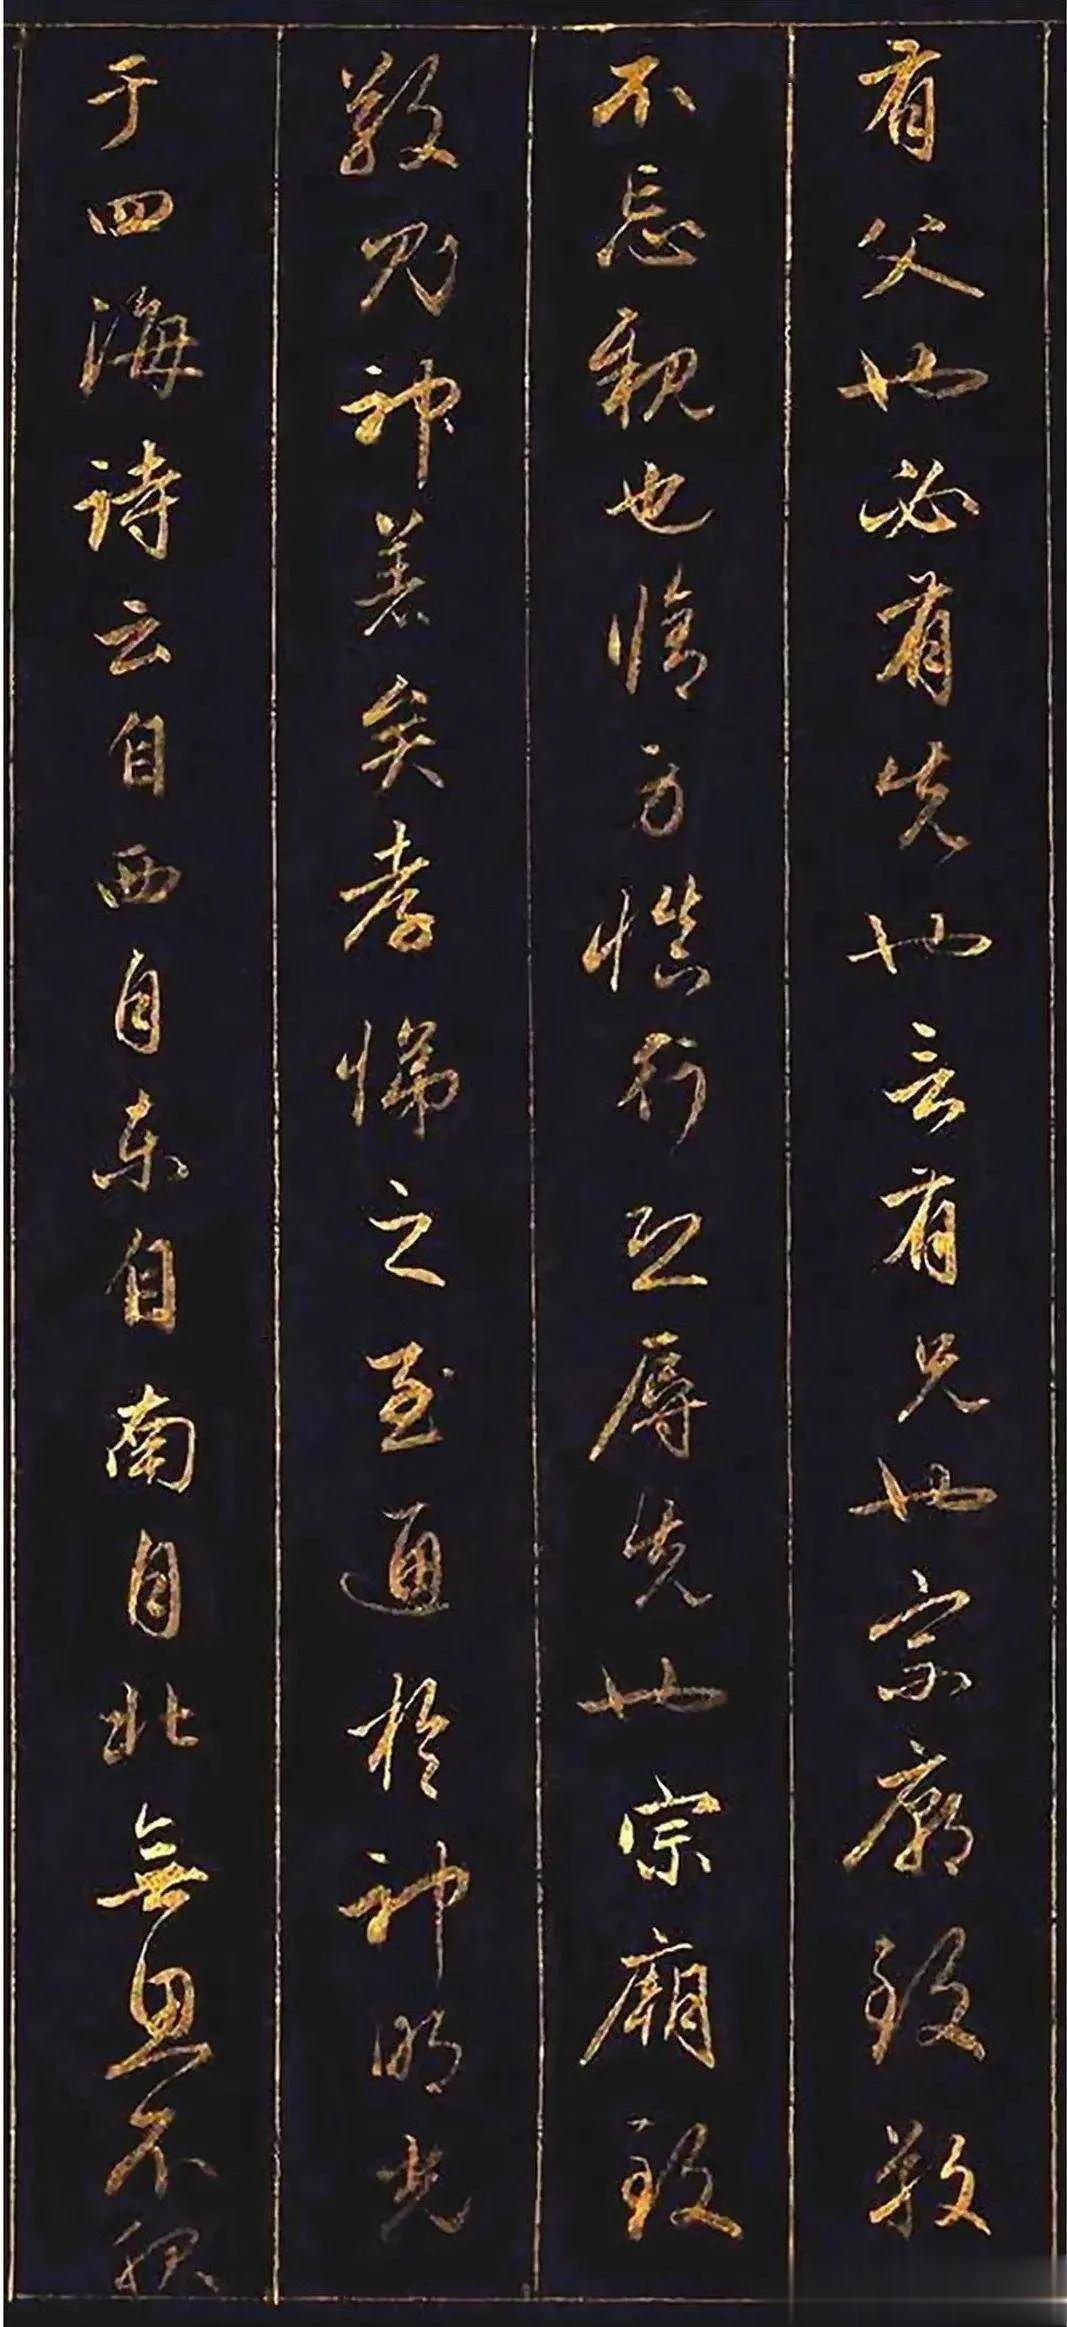 有父也必有先也言有兄也宗廟致敬
不忘親也脩身慎行恐辱先也宗廟致
敬鬼神著矣孝悌之至通於神明光
于四海詩云自西自東自南自北無思不服